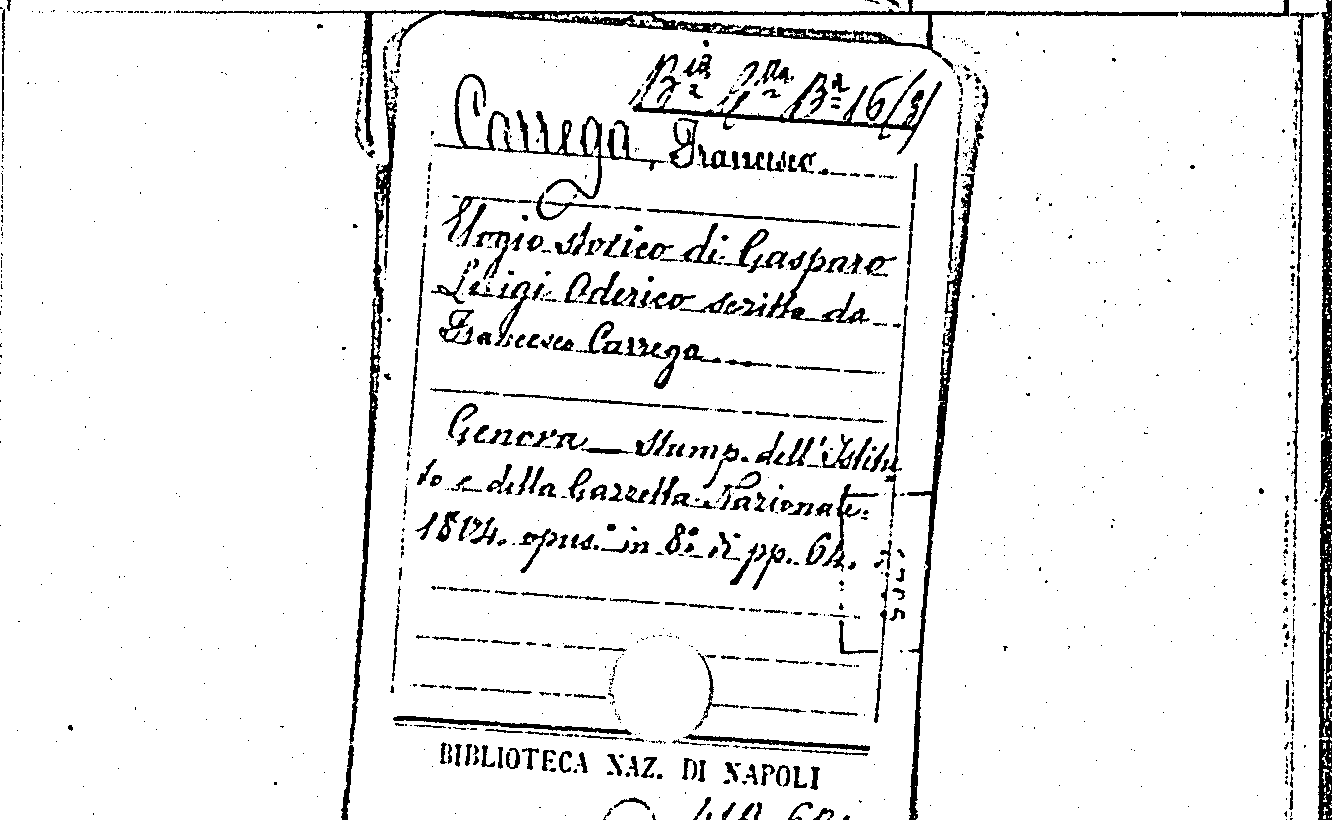 Carrega, Francesco.
Elogio storico di Gasparo
Luigi Oderico scritto da
Francesco Carrega
Genova — stamp. dell'Istitu
to e della Gazzetta Nazionale:
opus.° in 8.° di pp. 64.
BIBLIOTECA NAZ. DI NAPOLI